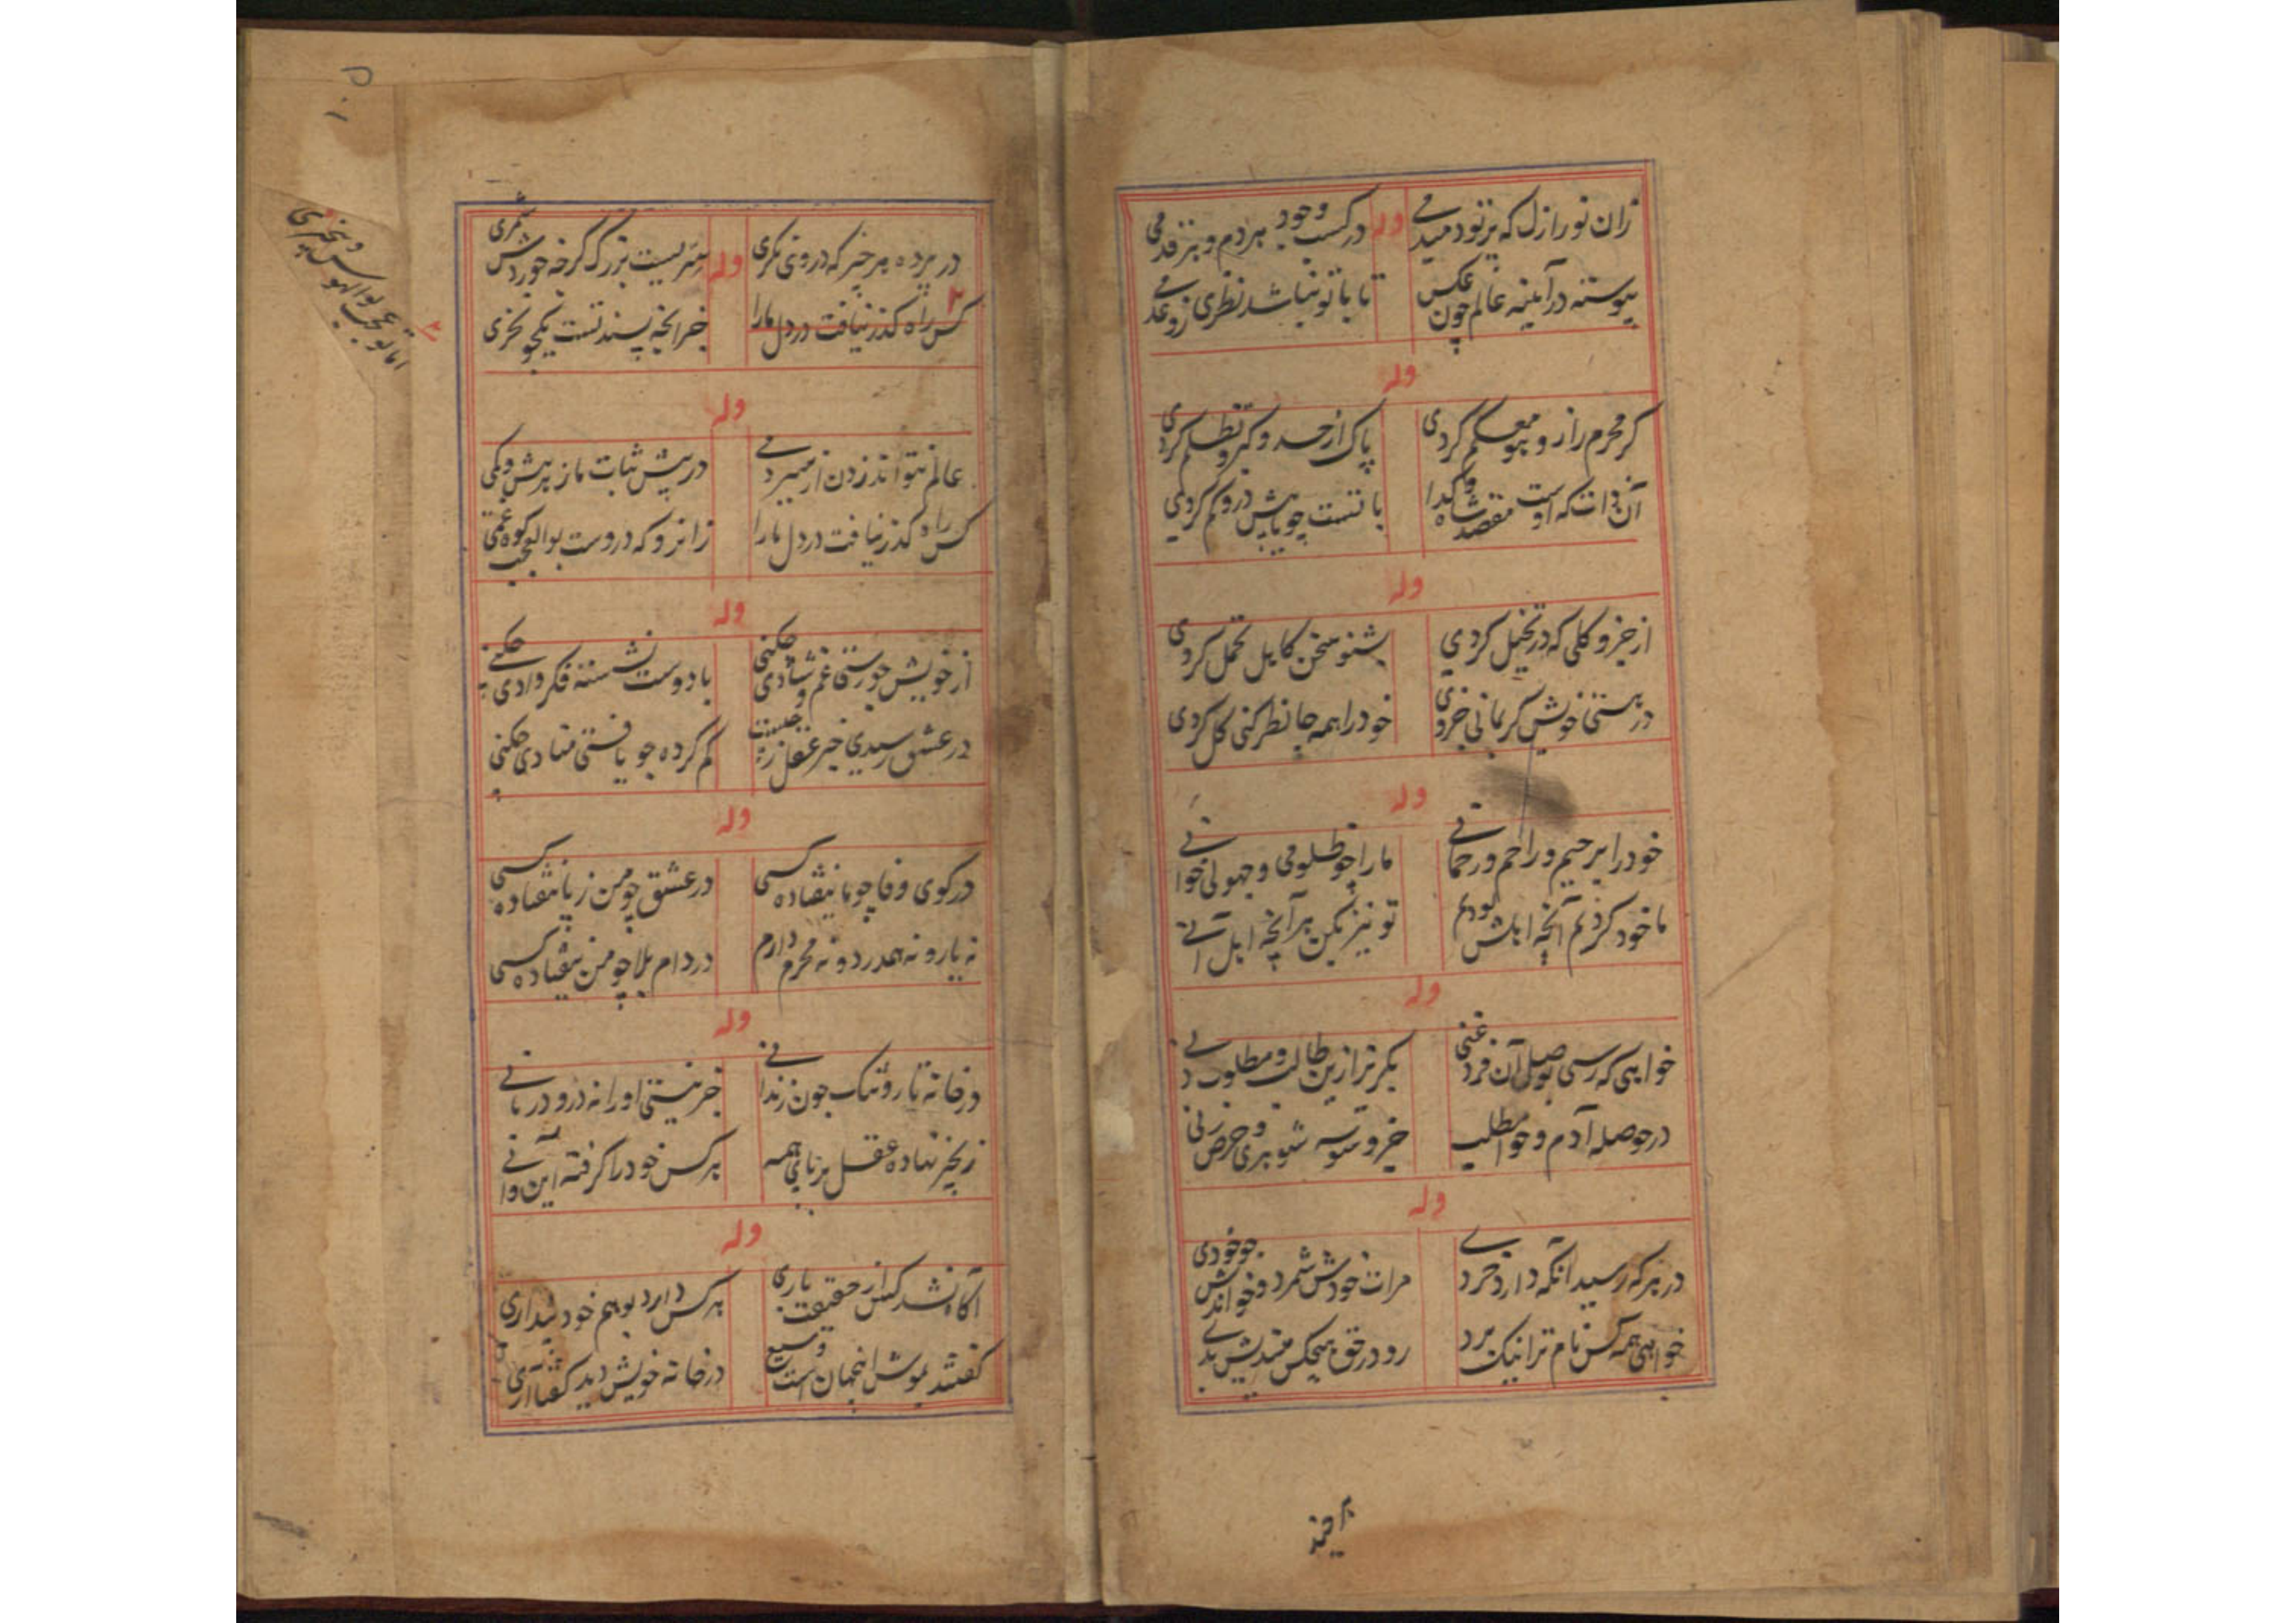 زان نور ازل که پرتو دمیدمی وله در کسب وجود هردم و هر قدمی
پیوسته در آینه عالم چون عکس تا با تو نباشد نظری زو عدمی
وله
گر محرم راز و پیو معکم گردی پاک از حسد و کبر و تظلم گردی
آن ذات که اوست مقصد شاه و گدا با تست چو باهش درو گم گردی
وله
از جز و کلی که در تخیل کردی بشنو سخن کابل تحمل کردی
در هستی خویش گر بمانی جزوی خود را همه جا نظر کنی کل گردی
وله
خود را برحیم و راحم و رحمانی ما را چو ظلومی و جهولی خوانی
ما خود کردیم آنچه اهلش بودیم تو نیز بکن هر آنچه اهل آنی
وله
خواهی که رسی بوصل آن فرد غنی بگذر تو ازین طالب و مطلوب
در حوصله آدم و حوا مطلب جز وسوسه شوهری و حرص زنی
وله
در هر که رسید آنکه دارد خردی مرات خودش شمرد و خواندش چو خودی
خواهی همه کس نام ترا نیک برد رو در حق هیچکس میندیش بدی
بر چند
۱۰۵
در پرده هر چیز که دروی نگری وله سریست بزرگ گرچه خوردش شمری
کس راه گذر نیافت در دل ما را جز آنچه پسند تست یکجو نخری
اما تو عجب بوالهوس و بیخبری
وله
عالم نتواند زدن از میر دمی در پیش ثبات ما ز بیش و کمی
کس راه گذر نیافت در دل ما را زانرو که دروست بوالعجب کوه غمی
وله
از خویش چو رستی غم و شادی چکنی با دوست نشسته فکر وادی چکنی
در عشق رسیدی خبر عقل ز چیست گم کرده چو یافتی منادی چکنی
وله
در کوی وفا چو ما نیفتاده کسی در عشق چو من ز پا نیفتاده کسی
نه یار و نه همدرد و نه محرم دارم در دام بلا چو من نیفتاده کسی
وله
در خانه تار و تنک چون زندانی جز نیستی او را نه در و دربانی
زنجیر نهاده عقل بر پای همه هر کس خود را گرفته این و آنی
وله
آگاه نشد کس از حقیقت باری هر کس دارد بوهم خود پنداری
گفتند بموش اینجهان است وسیع در خانه خویش دید گفتا آری